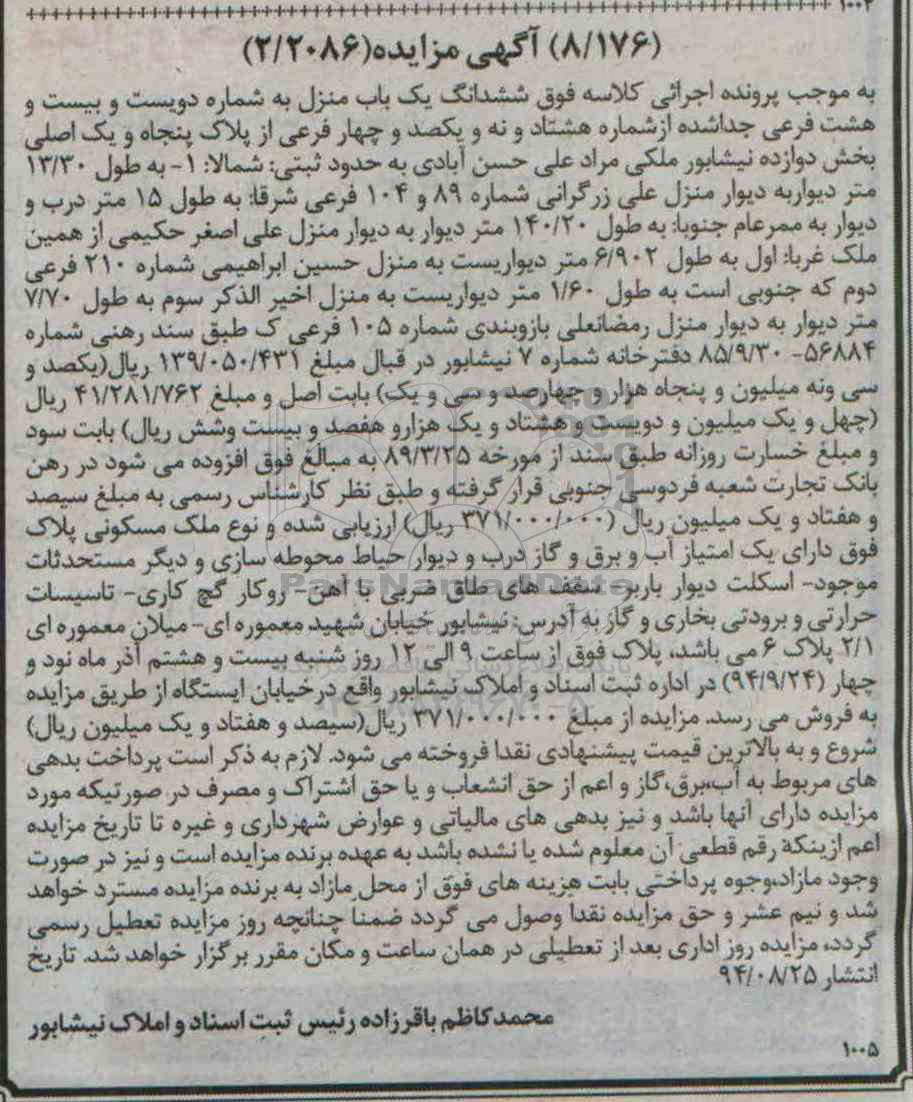 ۱۰۰۳
(۸/۱۷۶) آگهی مزایده(۲/۲۰۸۶)
به موجب پرونده اجرائی کلاسه فوق ششدانگ یک باب منزل به شماره دویست و بیست و
هشت فرعی جداشده ازشماره هشتاد و نه و یکصد و چهار فرعی از پلاک پنجاه و یک اصلی
بخش دوازده نیشابور ملکی مراد علی حسن آبادی به حدود ثبتی: شمالا: ۱- به طول ۱۳/۳۰
متر دیواربه دیوار منزل علی زرگرانی شماره ۸۹ و ۱۰۴ فرعی شرقا: به طول ۱۵ متر درب و
دیوار به ممرعام جنوبا: به طول ۱۴۰/۲۰ متر دیوار به دیوار منزل علی اصغر حکیمی از همین
ملک غربا: اول به طول ۶/۹۰۲ متر دیواریست به منزل حسین ابراهیمی شماره ۲۱۰ فرعی
دوم که جنوبی است به طول ۱/۶۰ متر دیواریست به منزل اخیر الذکر سوم به طول ۷/۷۰
متر دیوار به دیوار منزل رمضانعلی بازوبندی شماره ۱۰۵ فرعی ک طبق سند رهنی شماره
۵۶۸۸۴- ۸۵/۹/۳۰ دفترخانه شماره ۷ نیشابور در قبال مبلغ ۱۳۹/۰۵۰/۴۳۱ ریال(یکصد و
سی ونه میلیون و پنجاه هزار و چهارصد و سی و یک) بابت اصل و مبلغ ۴۱/۲۸۱/۷۶۲ ریال
(چهل و یک میلیون و دویست و هشتاد و یک هزارو هفصد و بیست وشش ریال) بابت سود
و مبلغ خسارت روزانه طبق سند از مورخه ۸۹/۳/۲۵ به مبالغ فوق افزوده می شود در رهن
بانک تجارت شعبه فردوسی جنوبی قرار گرفته و طبق نظر کارشناس رسمی به مبلغ سیصد
و هفتاد و یک میلیون ریال (۳۷۱/۰۰۰/۰۰۰ ریال) ارزیابی شده و نوع ملک مسکونی پلاک
فوق دارای یک امتیاز آب و برق و گاز درب و دیوار حیاط محوطه سازی و دیگر مستحدثات
موجود- اسکلت دیوار باربر- سقف های طاق ضربی با آهن- روکار گچ کاری- تاسیسات
حرارتی و برودتی بخاری و گاز به آدرس: نیشابور خیابان شهید معموره ای- میلان معموره ای
۲/۱ پلاک ۶ می باشد، پلاک فوق از ساعت ۹ الی ۱۲ روز شنبه بیست و هشتم آذر ماه نود و
چهار (۹۴/۹/۲۴) در اداره ثبت اسناد و املاک نیشابور واقع در خیابان ایستگاه از طریق مزایده
به فروش می رسد. مزایده از مبلغ ۳۷۱/۰۰۰/۰۰۰ ریال(سیصد و هفتاد و یک میلیون ریال)
شروع و به بالاترین قیمت پیشنهادی نقدا فروخته می شود. لازم به ذکر است پرداخت بدهی
های مربوط به آب،برق،گاز و اعم از حق انشعاب و یا حق اشتراک و مصرف در صورتیکه مورد
مزایده دارای آنها باشد و نیز بدهی های مالیاتی و عوارض شهرداری و غیره تا تاریخ مزایده
اعم ازینکه رقم قطعی آن معلوم شده یا نشده باشد به عهده برنده مزایده است و نیز در صورت
وجود مازاد،وجوه پرداختی بابت هزینه های فوق از محل مازاد به برنده مزایده مسترد خواهد
شد و نیم عشر و حق مزایده نقدا وصول می گردد ضمنا چنانچه روز مزایده تعطیل رسمی
گردد، مزایده روز اداری بعد از تعطیلی در همان ساعت و مکان مقرر برگزار خواهد شد. تاریخ
انتشار ۹۴/۰۸/۲۵
محمدکاظم باقرزاده رئیس ثبت اسناد و املاک نیشابور
۱۰۰۵
ParsNamadData